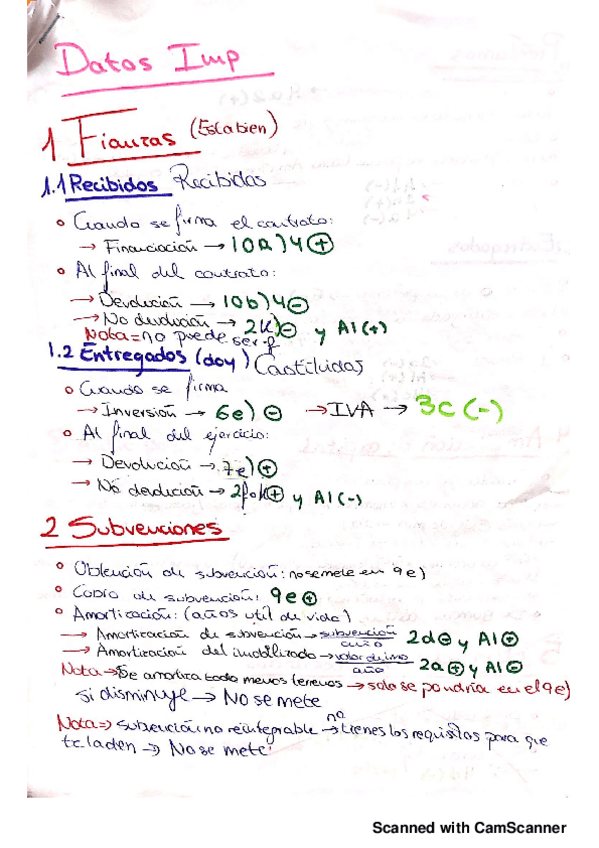 Datos Imp
1 Fianzas (Esta bien)
1.1 Recibidos Recibidas
• Cuando se firma el contrato:
→ Financiación → 10a)4 (+)
• Al final del contrato:
→ Devolución → 10b)4 (-)
→ No devolución → 2k) (-) y A1(+)
Nota = no puede ser f
1.2 Entregados (doy) Constituidas
• Cuando se firma
→ Inversión → 6e) (-) → IVA → 3c (-)
• Al final del ejercicio:
→ Devolución → 7e) (+)
→ No devolución → 2f o k (+) y A1(-)
2 Subvenciones
• Obtención de subvención: no se mete en 9e)
• Cobro de subvención: 9e (+)
• Amortización: (años util de vida)
→ Amortización de subvención → subvención/años 2d (-) y A1 (+)
→ Amortización del inmobilizado → /año 2a (+) y A1 (-)
Nota → Se amortiza todo menos terrenos → solo se pondría en el 9e)
si disminuye → No se mete
Nota => subvención no reintegrable → no tienes los requisitos para que
te la den → No se mete
Scanned with CamScanner